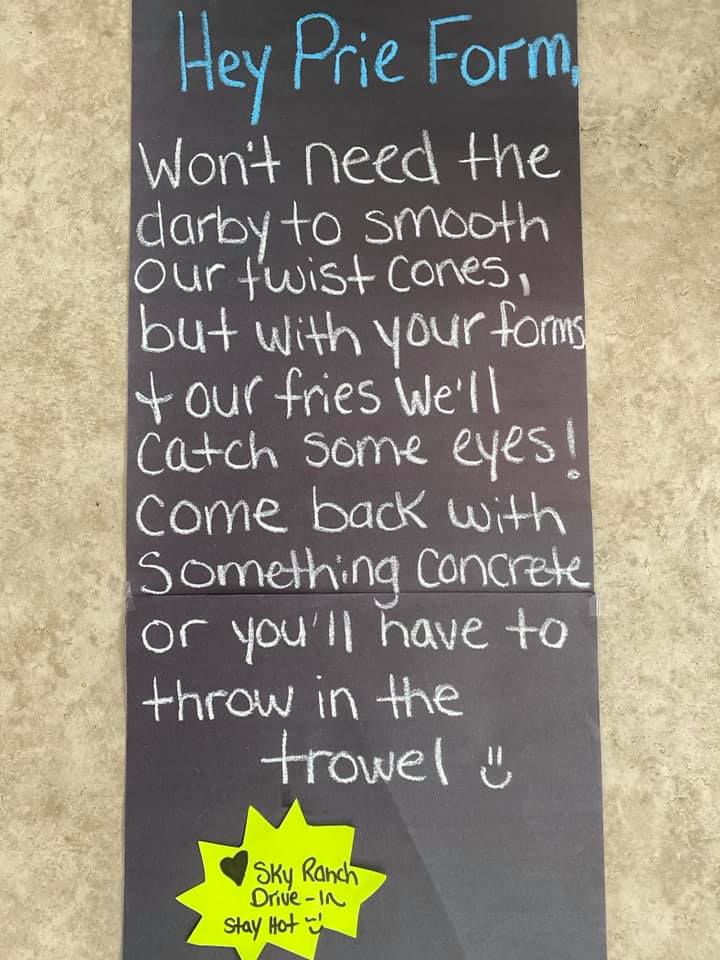 Hey Prie Form,
Won't need the
darby to smooth
our twist cones,
but with your forms
+ our fries We'll
catch some eyes!
Come back with
Something Concrete
or you'll have to
throw in the
trowel
Sky Ranch
Drive-In
Stay Hot